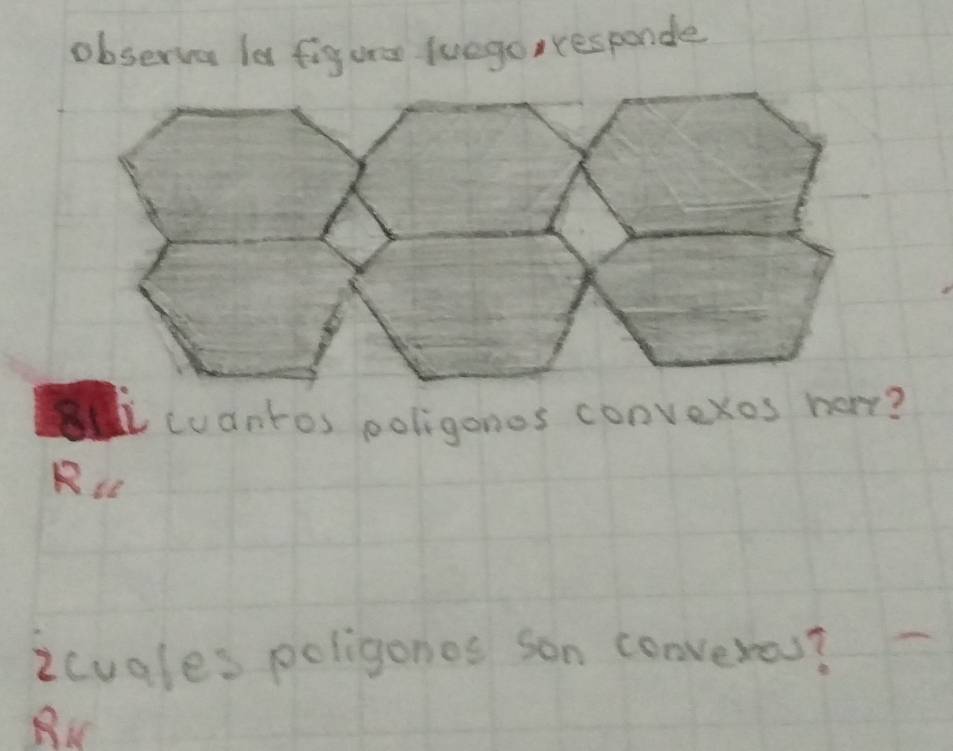 observa la figura luego, responde
81 ¿ cuantos poligonos convexos hay?
R//
¿cuales poligonos son convexos?
R//